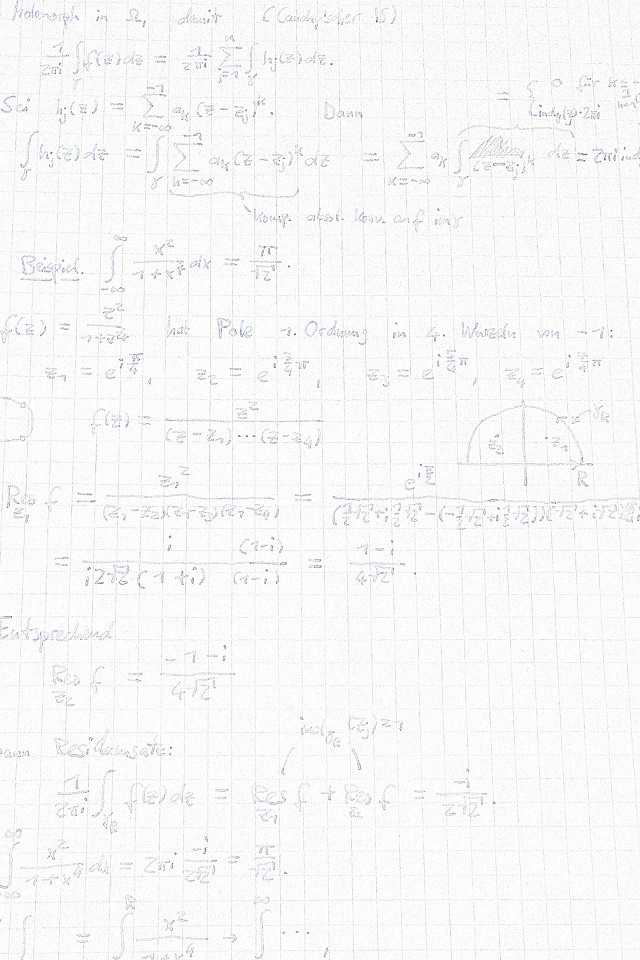 Holomorph in Ω, damit (Cauchyscher IS)
1/(2πi) ∫_γ f(z) dz = 1/(2πi) Σ_{j=1}^{n} ∫_γ h_j(z) dz.
Sei h_j(z) = Σ_{k=-∞}^{-1} a_k (z-z_j)^k. Dann = { 0 für k ≤ -
ind_γ(z_j)·2πi
∫_γ h_j(z) dz = ∫_γ Σ_{k=-∞}^{-1} a_k (z-z_j)^k dz = Σ_{k=-∞}^{-1} a_k ∫_γ (z-z_j)^k dz = 2πi ind
komp. absol. konv. auf im γ
Beispiel. ∫_{-∞}^{∞} x²/(1+x⁴) dx = π/√2.
f(z) = z²/(1+z⁴) hat Pole 1. Ordnung in 4. Wurzeln von -1:
z_1 = e^{i π/4}, z_2 = e^{i 3/4 π}, z_3 = e^{i 5/4 π}, z_4 = e^{i 7/4 π}
f(z) = z²/((z-z_1)···(z-z_4))
γ_R
z_2 z_1
R
Res_{z_1} f = z_1²/((z_1-z_2)(z_1-z_3)(z_1-z_4)) = e^{i π/2}/((½√2+i½√2-(-½√2+i½√2))(√2+i√2)
= i (1-i)/(i2√2 (1+i) (1-i)) = (1-i)/(4√2).
Entsprechend
Res_{z_2} f = (-1-i)/(4√2)
ind_{γ_R}(z_j)=1
Residuensatz:
1/(2πi) ∫_{γ_R} f(z) dz = Res_{z_1} f + Res_{z_2} f = -i/(2√2).
∫_{-∞}^{∞} x²/(1+x⁴) dx = 2πi -i/(2√2) = π/√2.
∫ = ∫ x²/(1+x⁴) → ∫^{∞} ··· ,